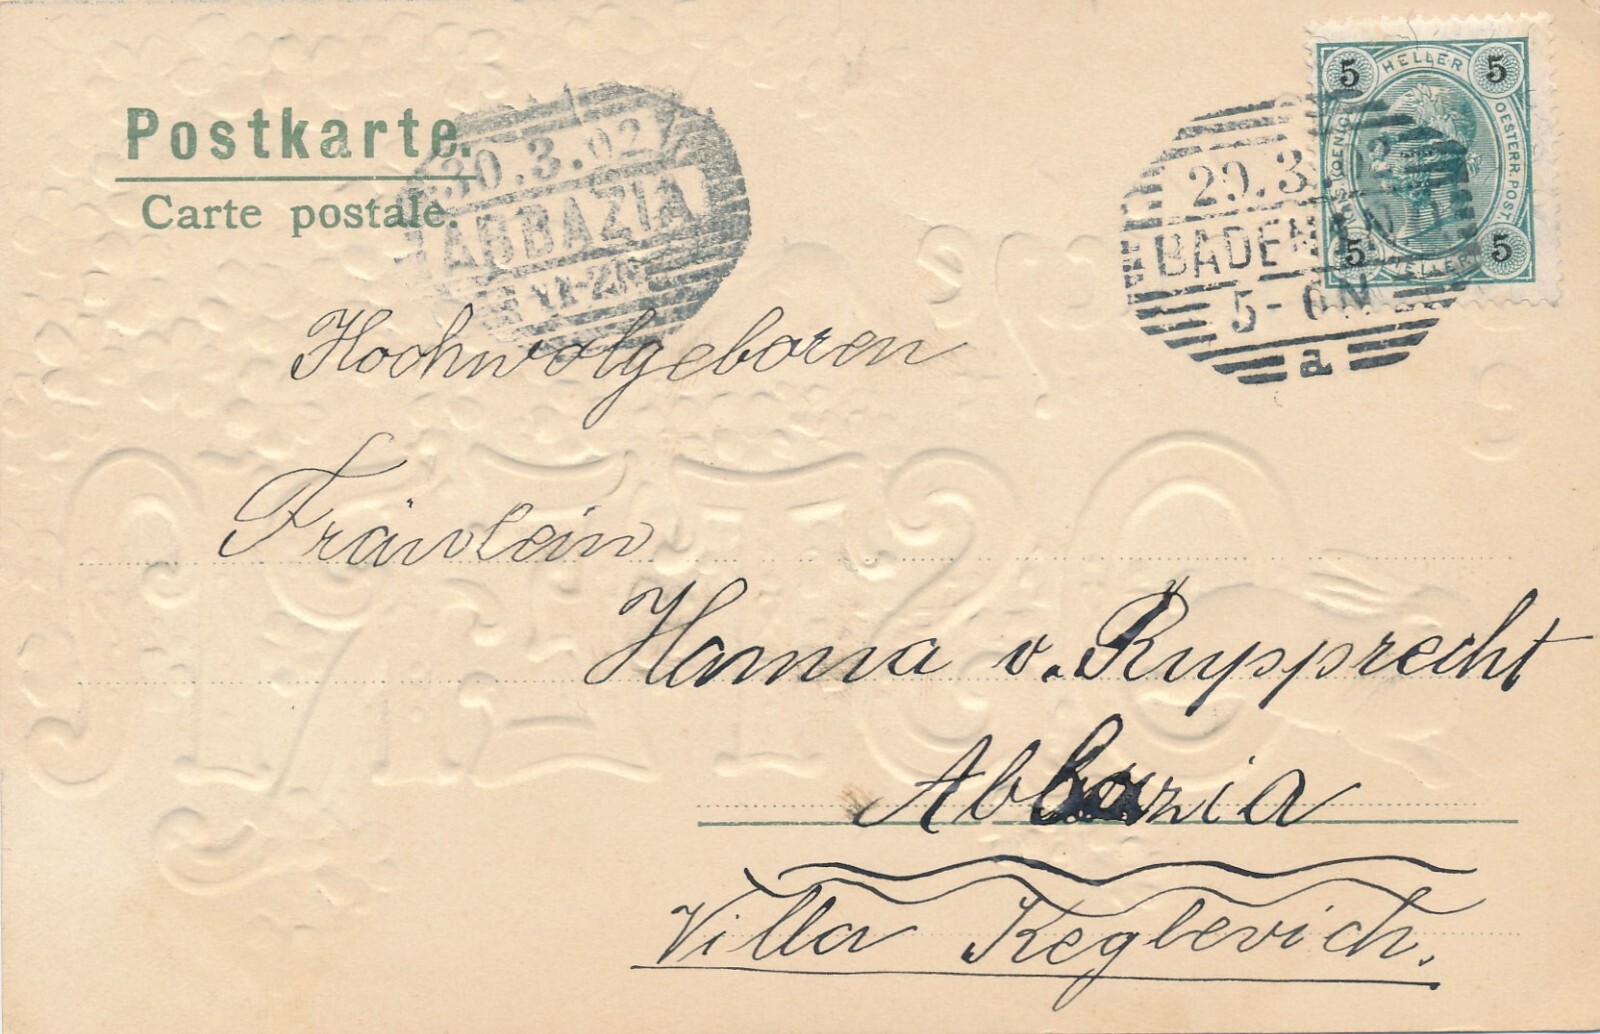 Postkarte.
Carte postale.
30.3.02
ABBAZIA
5 HELLER 5
OESTERR. POST.
5 5
29.3.02
BADEN
5-6N
a
Hochwolgeboren
Fräulein
Hanna v. Rupprecht
Abbazia
Villa Keglevich.